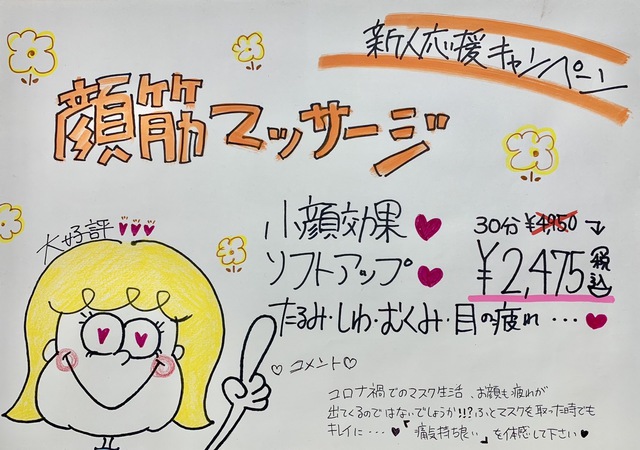 新人応援キャンペーン
顔筋マッサージ
大好評
小顔効果
ソフトアップ
たるみ・しわ・むくみ・目の疲れ・・・
30分 ¥4,950
¥2,475 税込
コメント
コロナ禍でのマスク生活、お顔も疲れが
出てくるのではないでしょうか!!?ふとマスクを取った時でも
キレイに・・・「痛気持ち良い」を体感して下さい